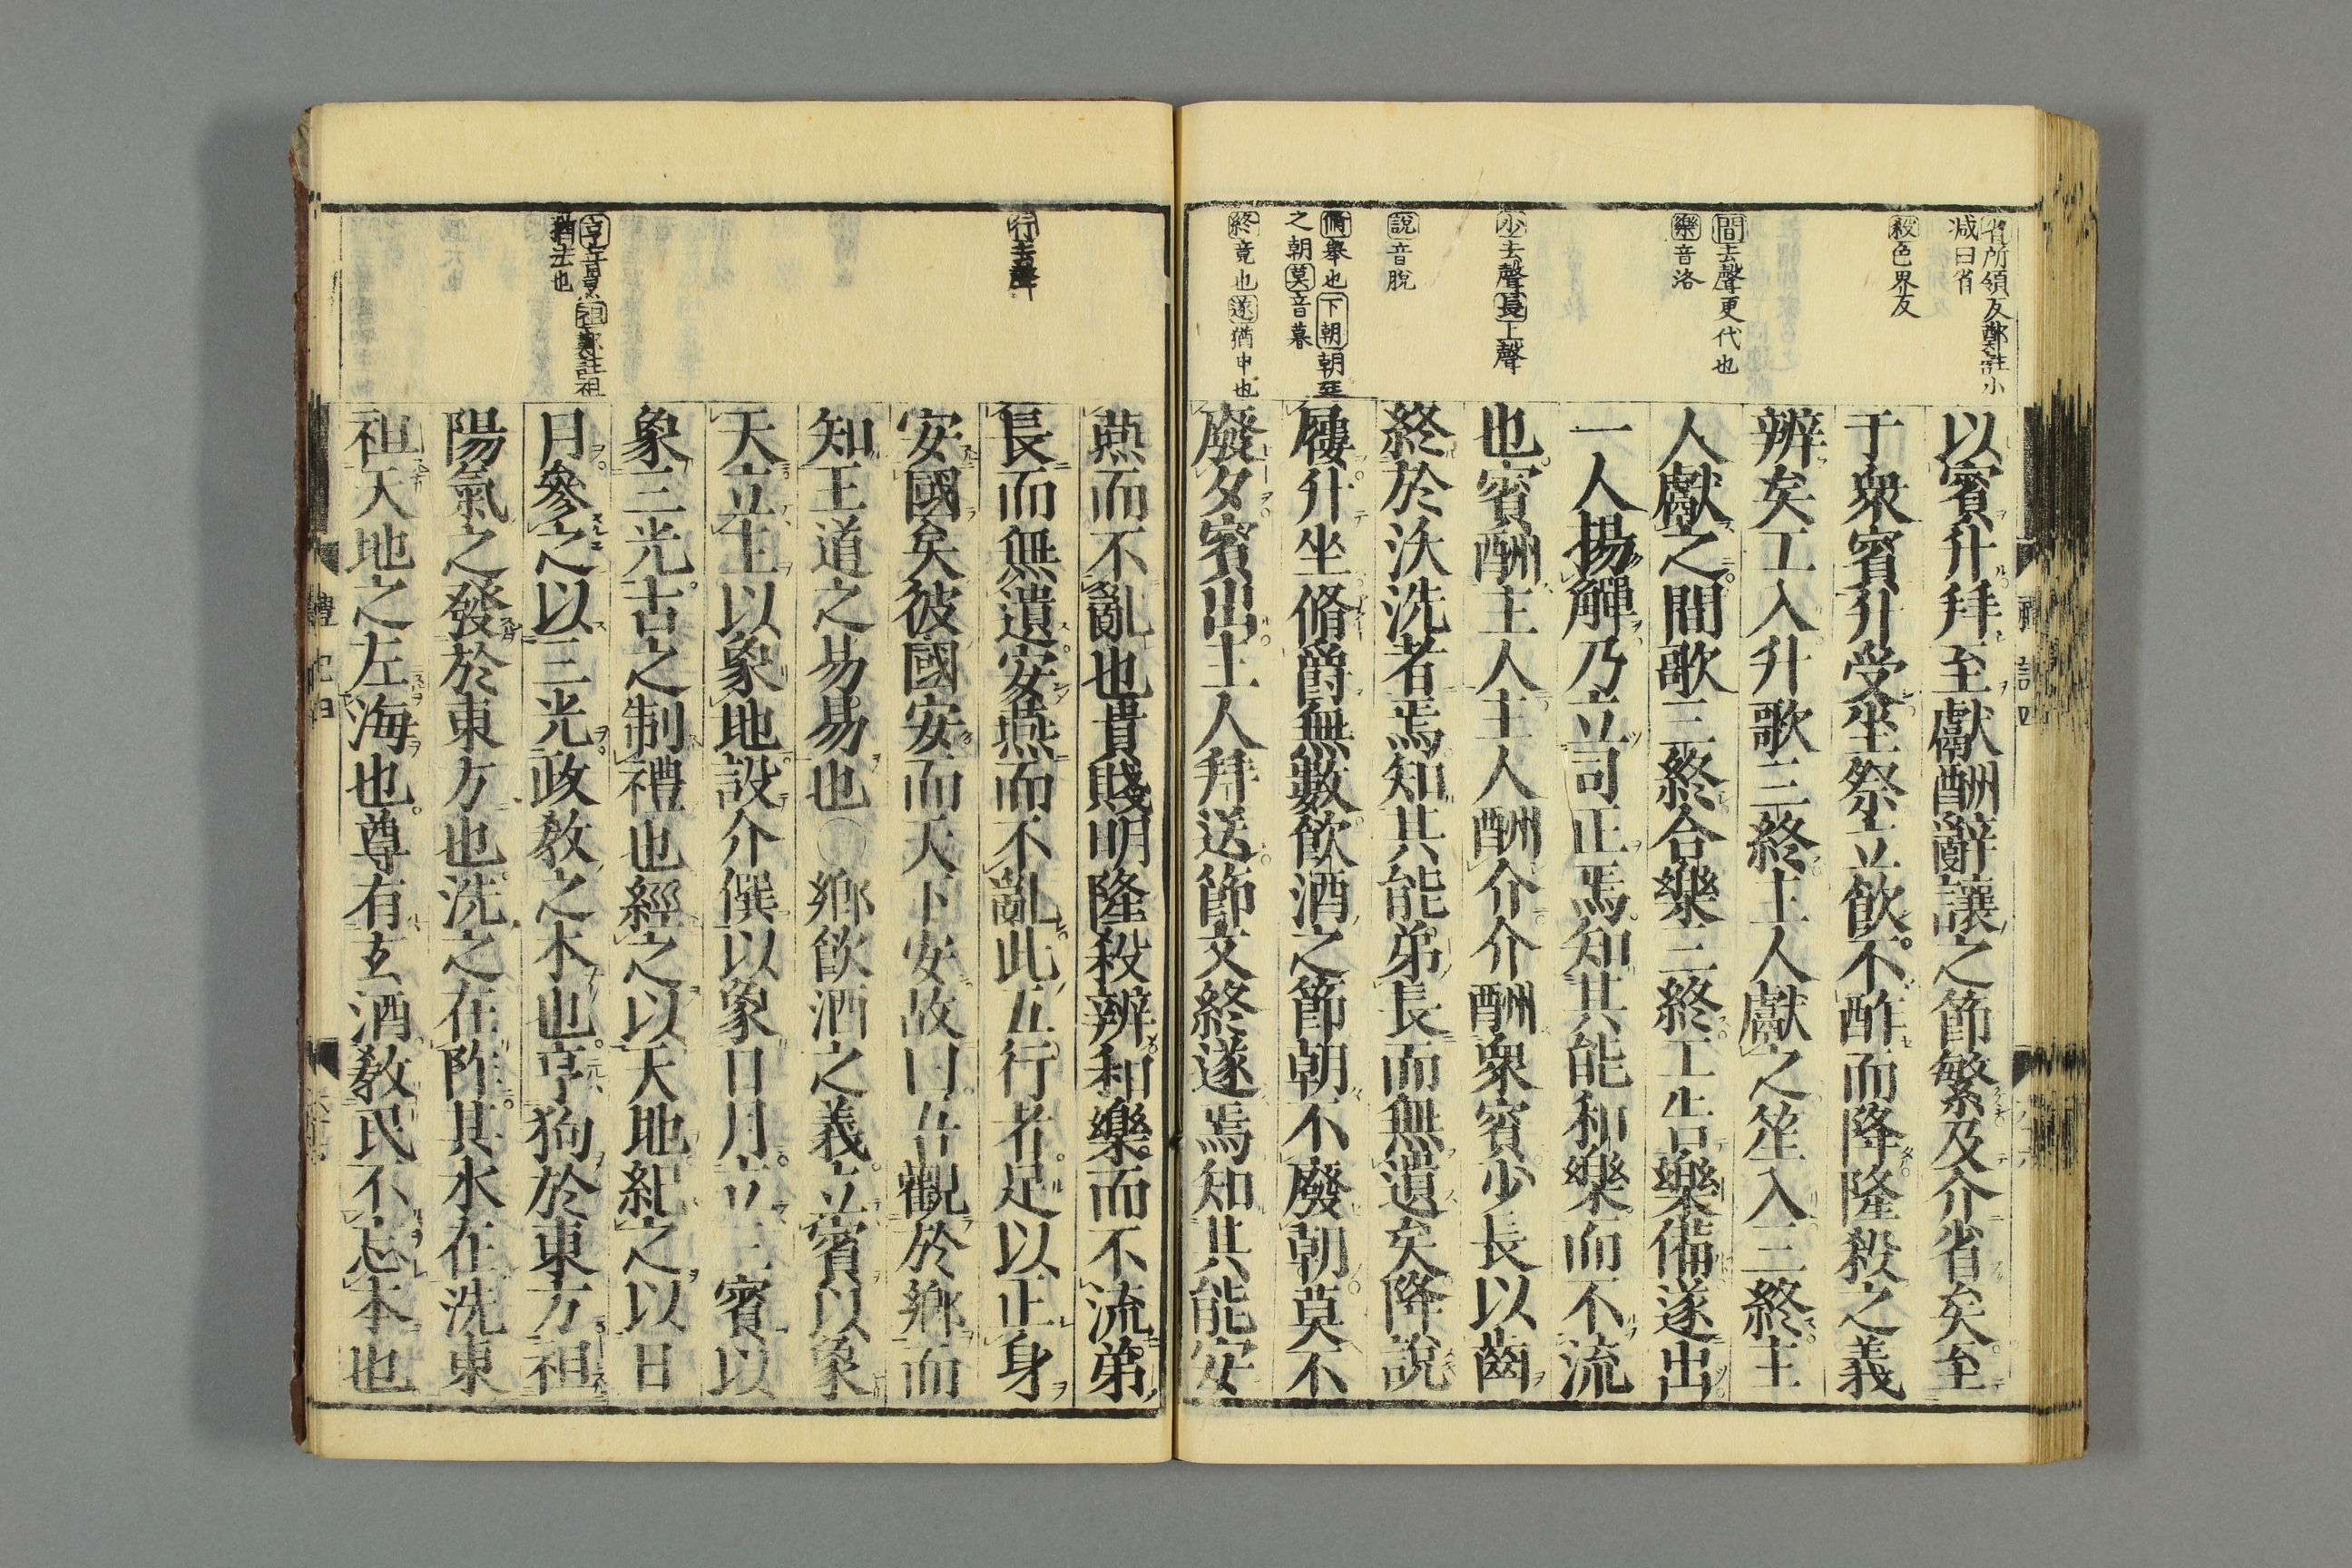 省所領反鄭註小
减曰省
殺色界反
間去聲更代也
樂音洛
少去聲長上聲
說音脫
脩舉也下朝朝廷
之朝莫音暮
終竟也遂猶申也
以賓升拜至獻酬辭讓之節繁及介省矣至
于衆賓升受坐祭立飮不酢而降隆殺之義
辨矣工入升歌三終主人獻之笙入三終主
人獻之間歌三終合樂三終工告樂備遂出
一人揚觶乃立司正焉知其能和樂而不流
也賓酬主人主人酬介介酬衆賓少長以齒
終於沃洗者焉知其能弟長而無遺矣降說
屨升坐脩爵無數飮酒之節朝不廢朝莫不
廢夕賓出主人拜送節文終遂焉知其能安
禮記四
行去聲
亨音烹祖鄭註祖
猶法也
燕而不亂也貴賤明隆殺辨和樂而不流弟
長而無遺安燕而不亂此五行者足以正身
安國矣彼國安而天下安故曰吾觀於鄕而
知王道之易易也○鄕飮酒之義立賓以象
天立主以象地設介僎以象日月立三賓以
象三光古之制禮也經之以天地紀之以日
月參之以三光政敎之本也亨狗於東方祖
陽氣之發於東方也洗之在阼其水在洗東
祖天地之左海也尊有玄酒敎民不忘本也
禮記四